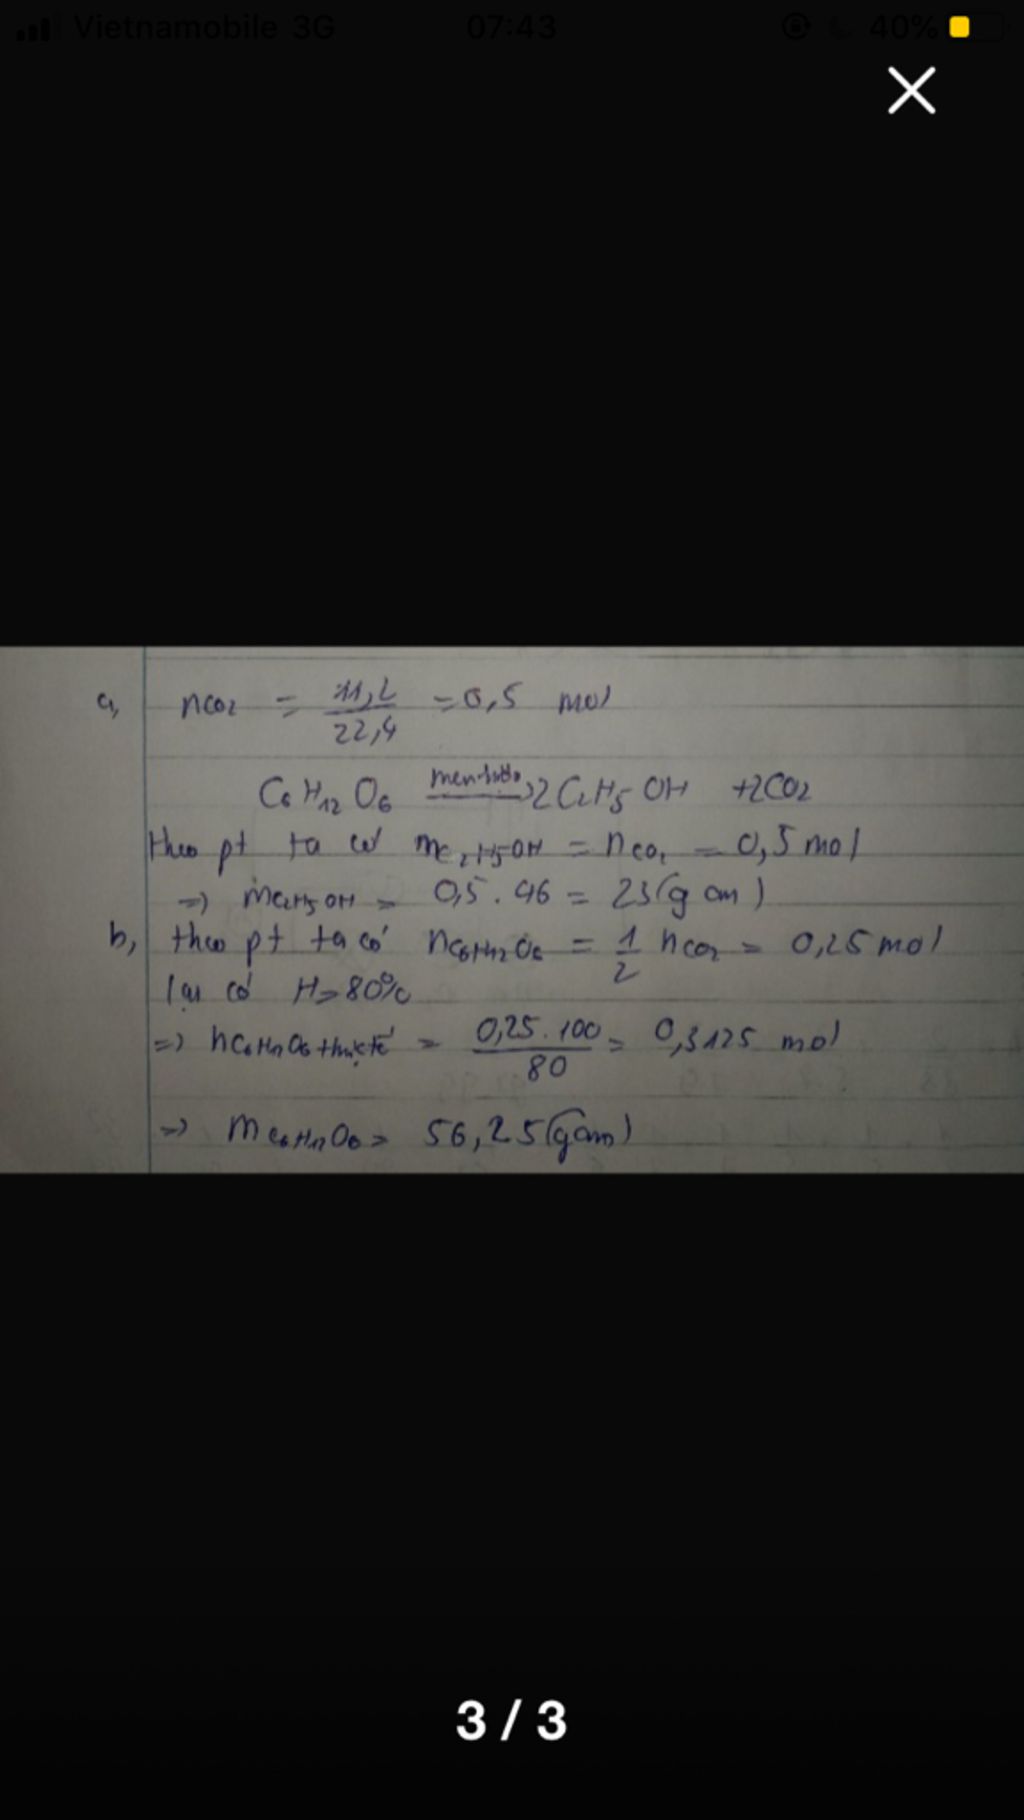 Vietnamobile 3G 07:43 40%
a, nCO2 = 11,2/22,4 = 0,5 mol
C6H12O6 men rượu → 2C2H5OH + 2CO2
theo pt ta có mC2H5OH = nCO2 = 0,5 mol
=> mC2H5OH = 0,5 . 46 = 23 (gam)
b, theo pt ta có nC6H12O6 = 1/2 nCO2 = 0,25 mol
lại có H = 80%
=> nC6H12O6 thực tế = 0,25.100/80 = 0,3125 mol
=> mC6H12O6 = 56,25 (gam)
3 / 3